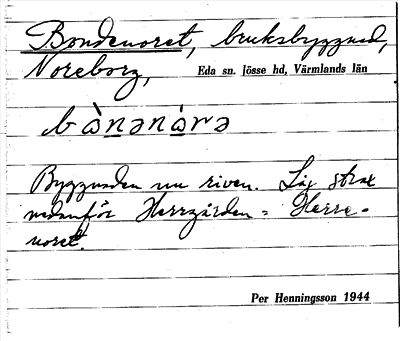 Bondenoret, bruksbyggnad,
Noreborg, Eda sn. Jösse hd, Värmlands län
bànənàrə
Byggnaden nu riven. Låg strax
nedanför Herrgården = Herre-
noret.
Per Henningsson 1944